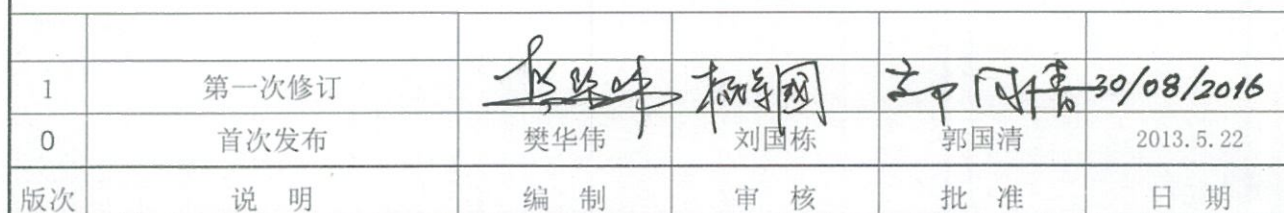 1 第一次修订 30/08/2016
0 首次发布 樊华伟 刘国栋 郭国清 2013.5.22
版次 说 明 编 制 审 核 批 准 日 期